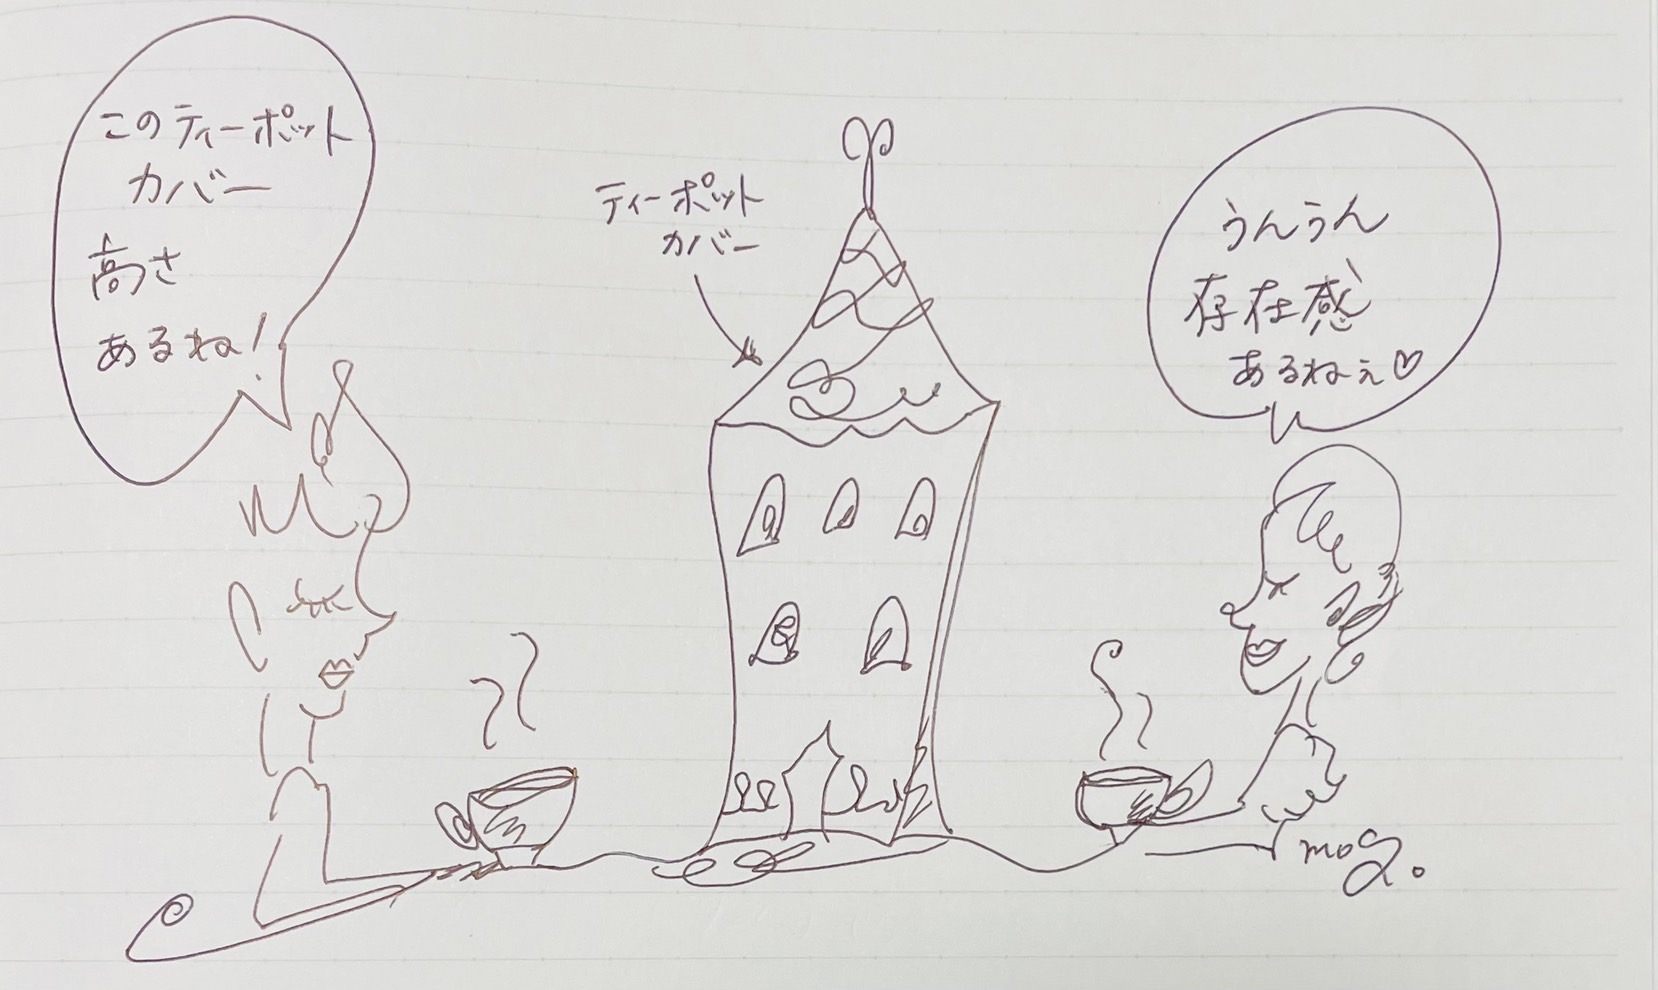 このティーポット
カバー
高さ
あるね!
ティーポット
カバー
うんうん
存在感
あるねぇ♡
mog.